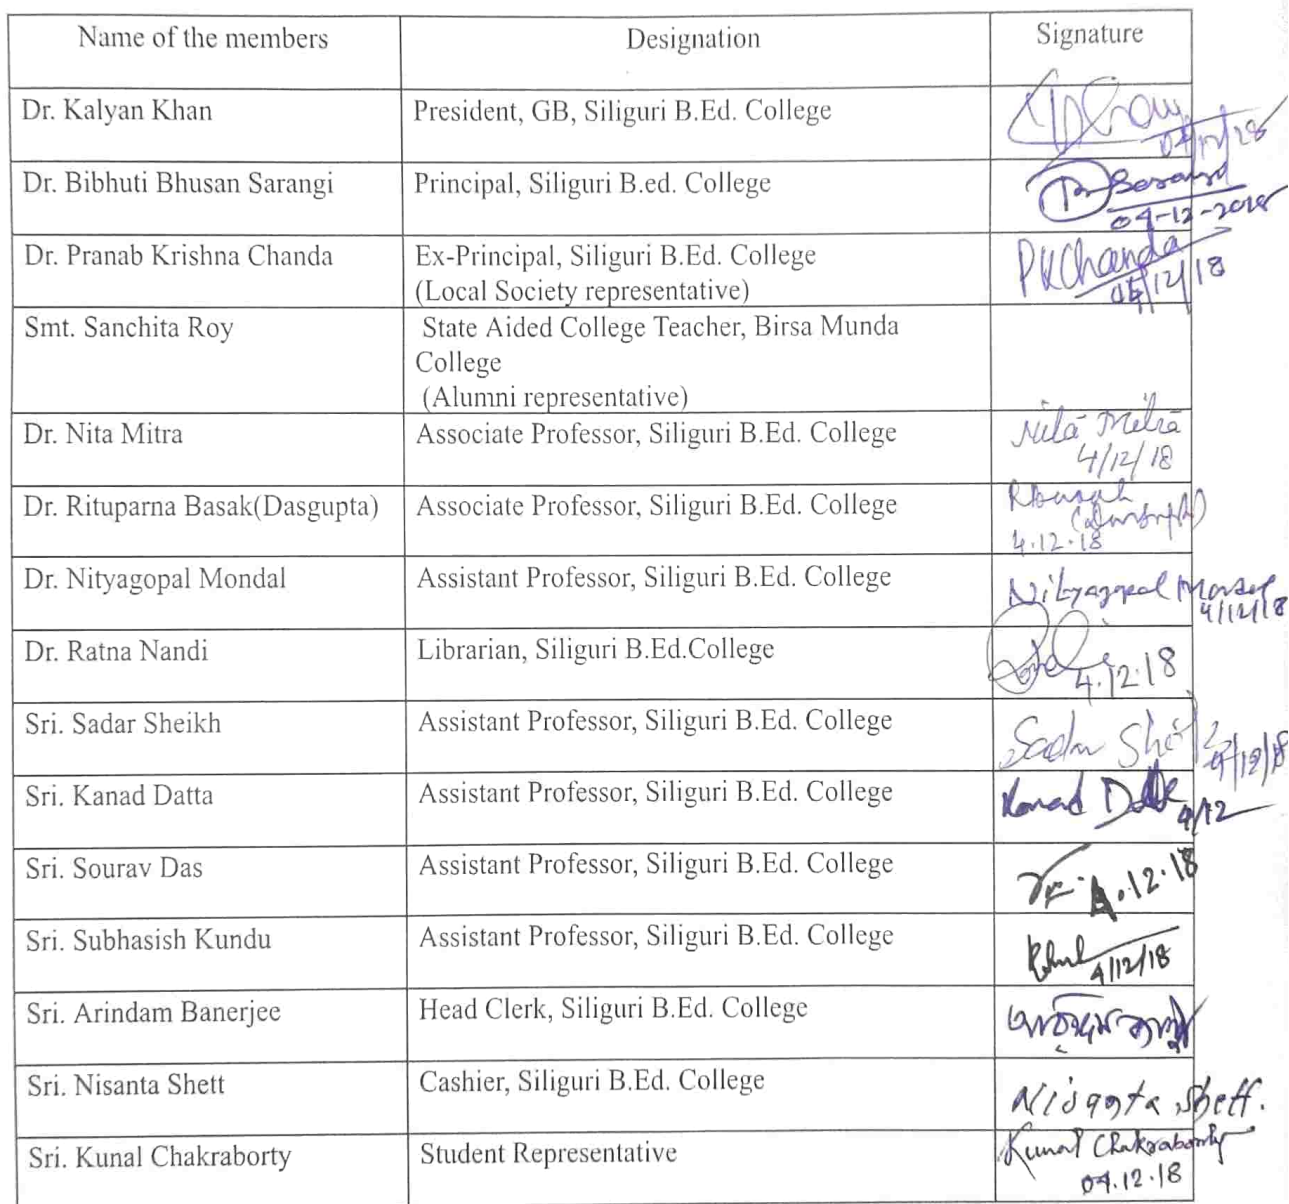 Name of the members Designation Signature
Dr. Kalyan Khan President, GB, Siliguri B.Ed. College
04/12/28
Dr. Bibhuti Bhusan Sarangi Principal, Siliguri B.ed. College Sarangi
04-12-2018
Dr. Pranab Krishna Chanda Ex-Principal, Siliguri B.Ed. College PKChanda
(Local Society representative) 04/12/18
Smt. Sanchita Roy State Aided College Teacher, Birsa Munda
College
(Alumni representative)
Dr. Nita Mitra Associate Professor, Siliguri B.Ed. College Nita Mitra
4/12/18
Dr. Rituparna Basak(Dasgupta) Associate Professor, Siliguri B.Ed. College RBasak
(Dasgupta)
4.12.18
Dr. Nityagopal Mondal Assistant Professor, Siliguri B.Ed. College Nityagopal Mondal
4/12/18
Dr. Ratna Nandi Librarian, Siliguri B.Ed.College
4.12.18
Sri. Sadar Sheikh Assistant Professor, Siliguri B.Ed. College Sadar
4/12/18
Sri. Kanad Datta Assistant Professor, Siliguri B.Ed. College Kanad Datta
4/12
Sri. Sourav Das Assistant Professor, Siliguri B.Ed. College
4.12.18
Sri. Subhasish Kundu Assistant Professor, Siliguri B.Ed. College
4/12/18
Sri. Arindam Banerjee Head Clerk, Siliguri B.Ed. College
Sri. Nisanta Shett Cashier, Siliguri B.Ed. College Nisanta Shett.
Sri. Kunal Chakraborty Student Representative Kunal Chakraborty
04.12.18